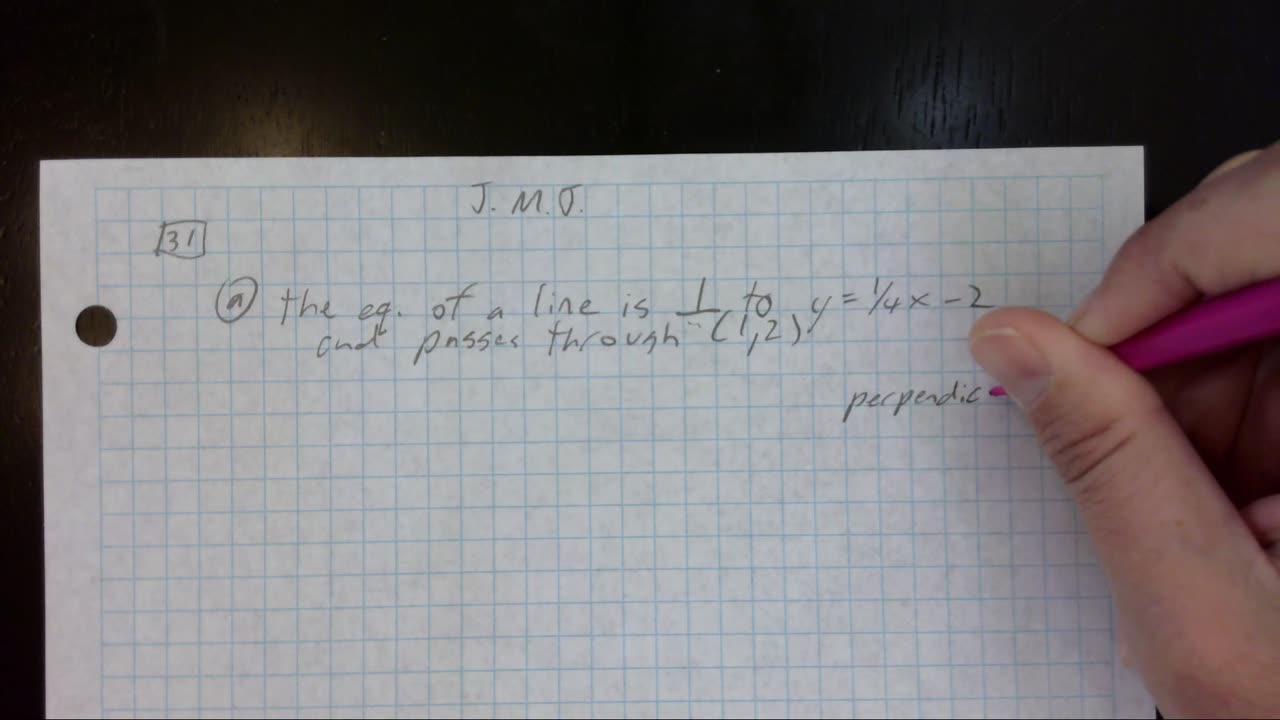 J. M. J.
31
(a) the eq. of a line is ⊥ to y = 1/4 x - 2
and passes through (1,2)
perpendic